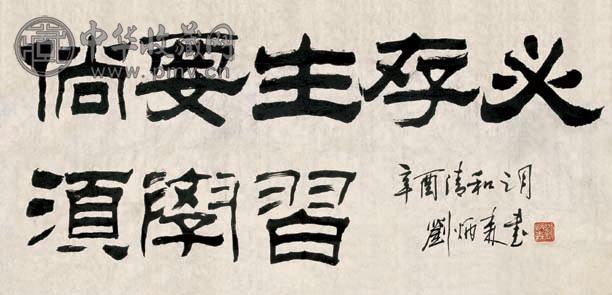 中华收藏网
www.pmv.cn
倘要生存必
須學習
辛酉清和之月
劉炳森書